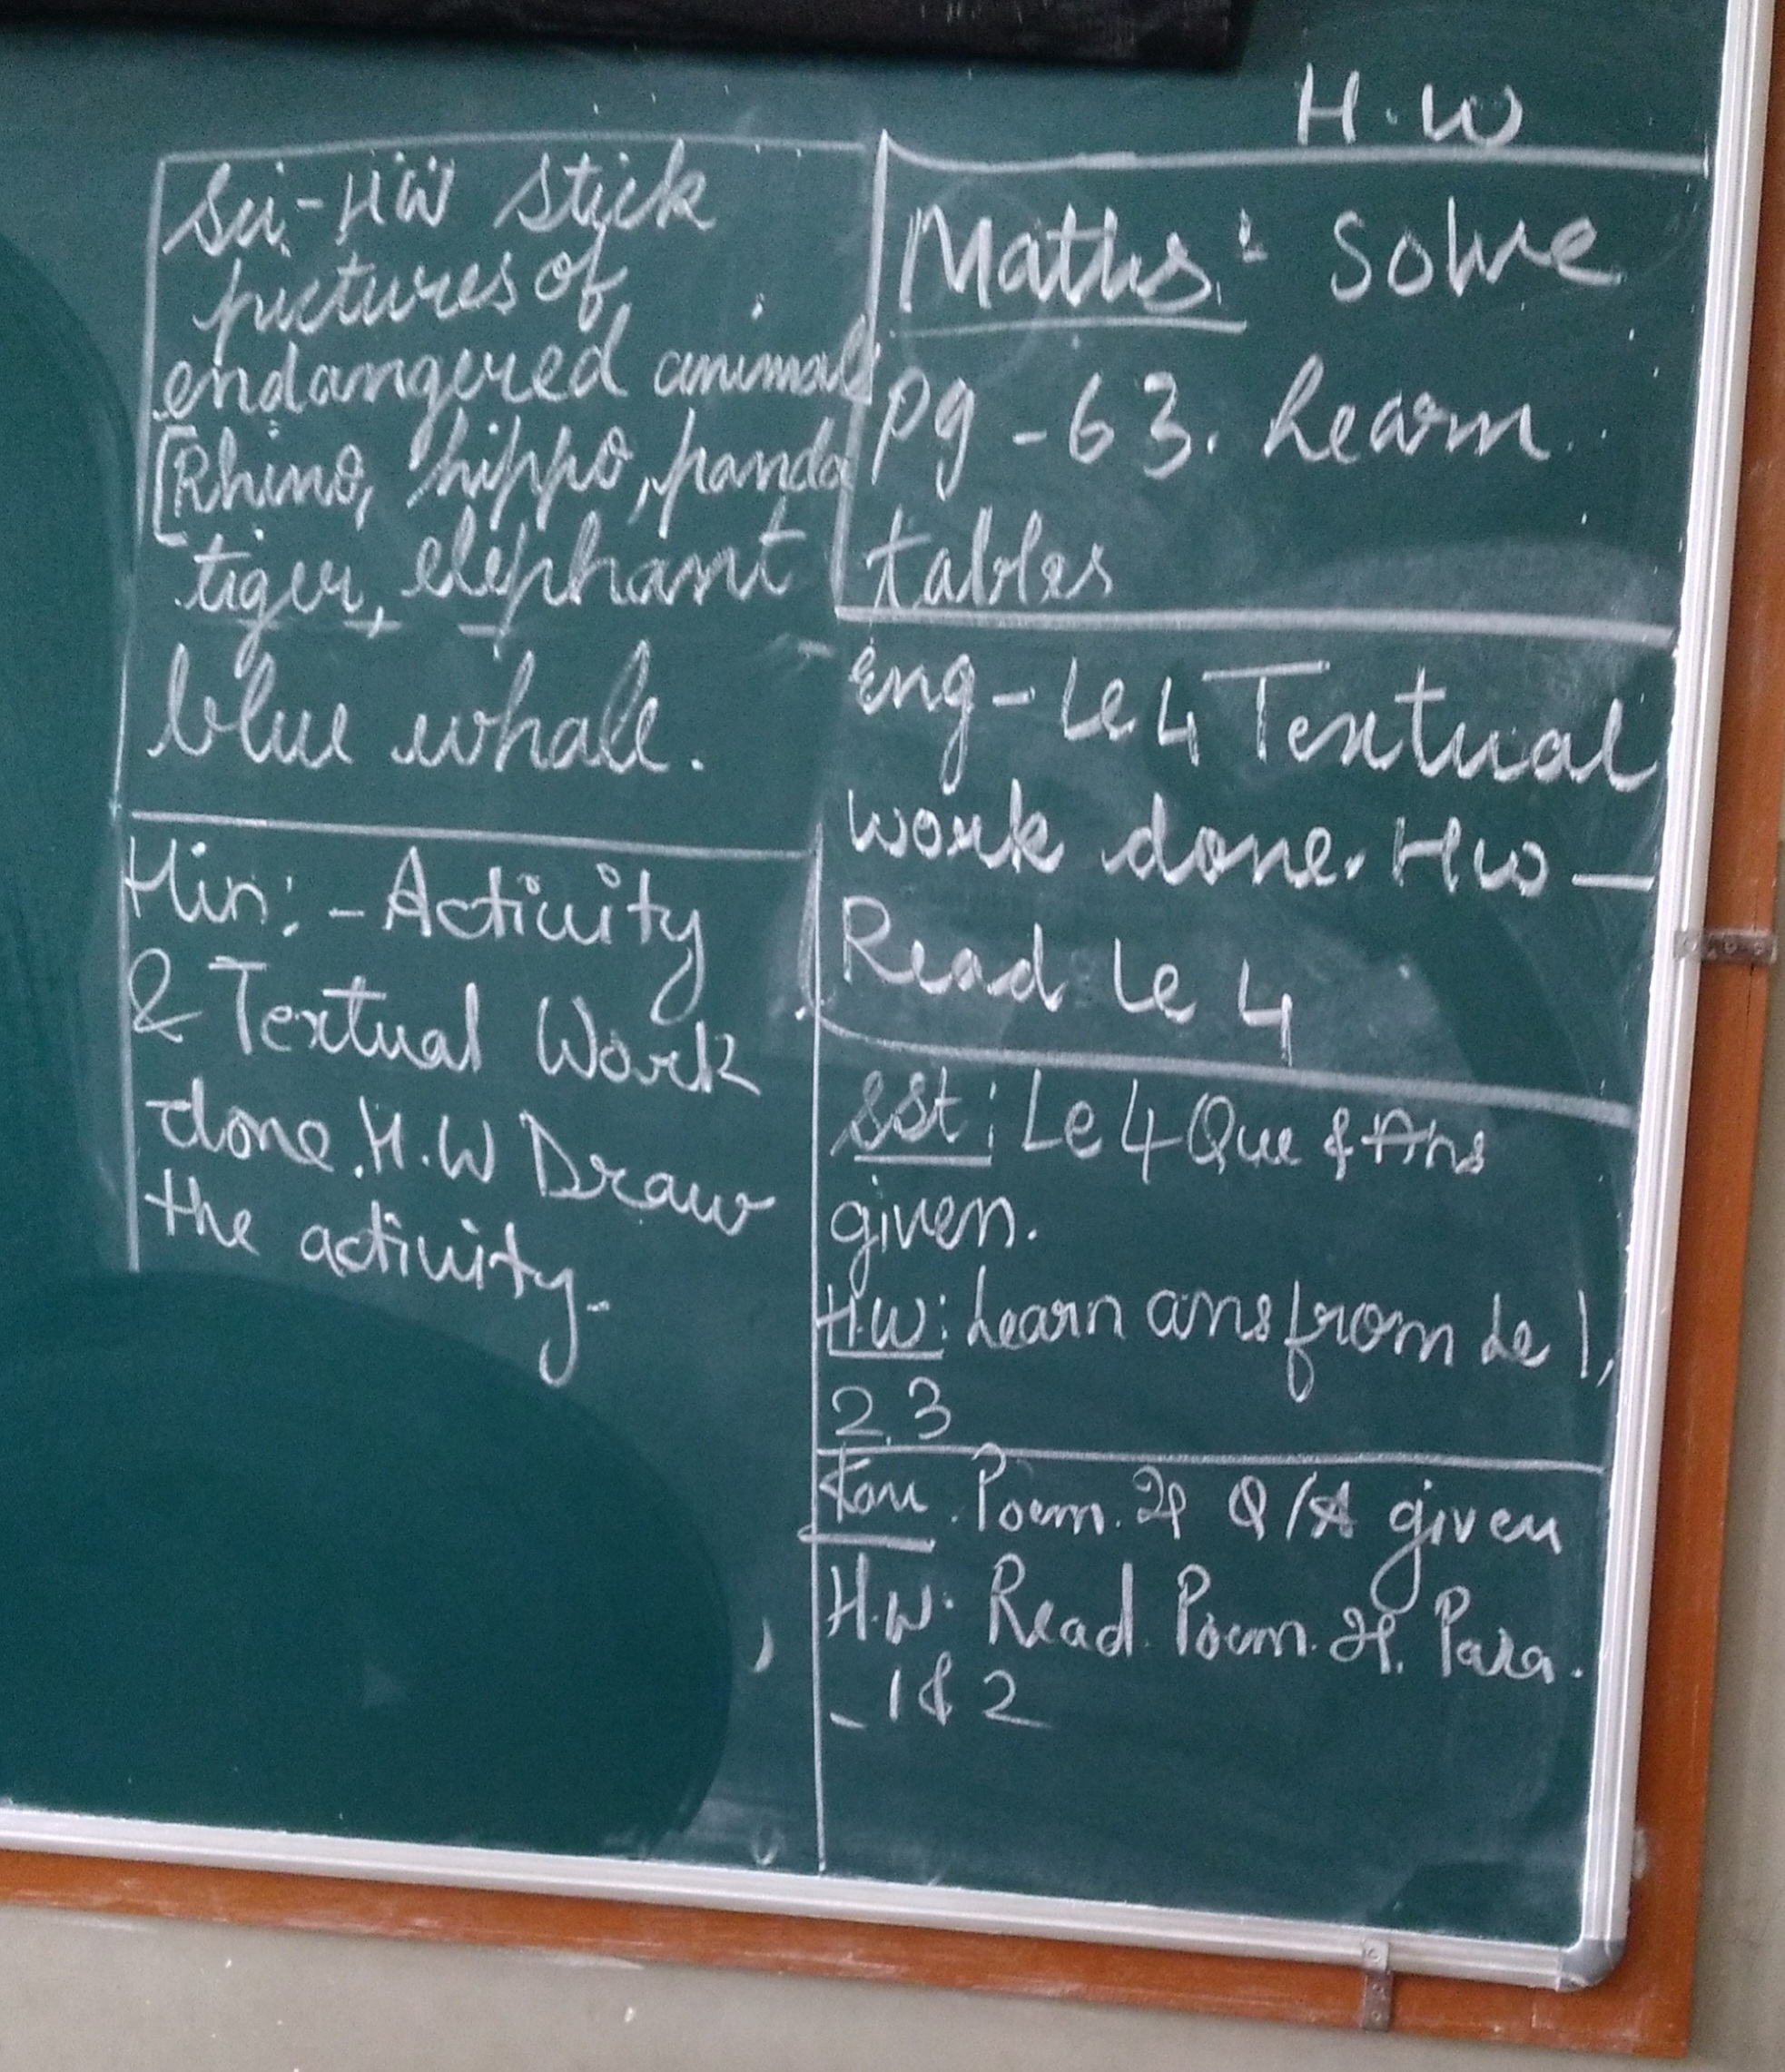 H.W
Sci-HW stick
pictures of
endangered animals
[Rhino, hippo, panda
tiger, elephant
blue whale.
Hin: - Activity
& Textual Work
done. H.W Draw
the activity.
Maths: Solve
pg - 63. Learn
tables
Eng - Le 4 Textual
work done. HW -
Read Le 4
SSt: Le 4 Que & Ans
given.
H.W: Learn ans from Le 1,
2, 3
Kan. Poem. Q/A given
H.W. Read Poem. Para.
- 1 & 2